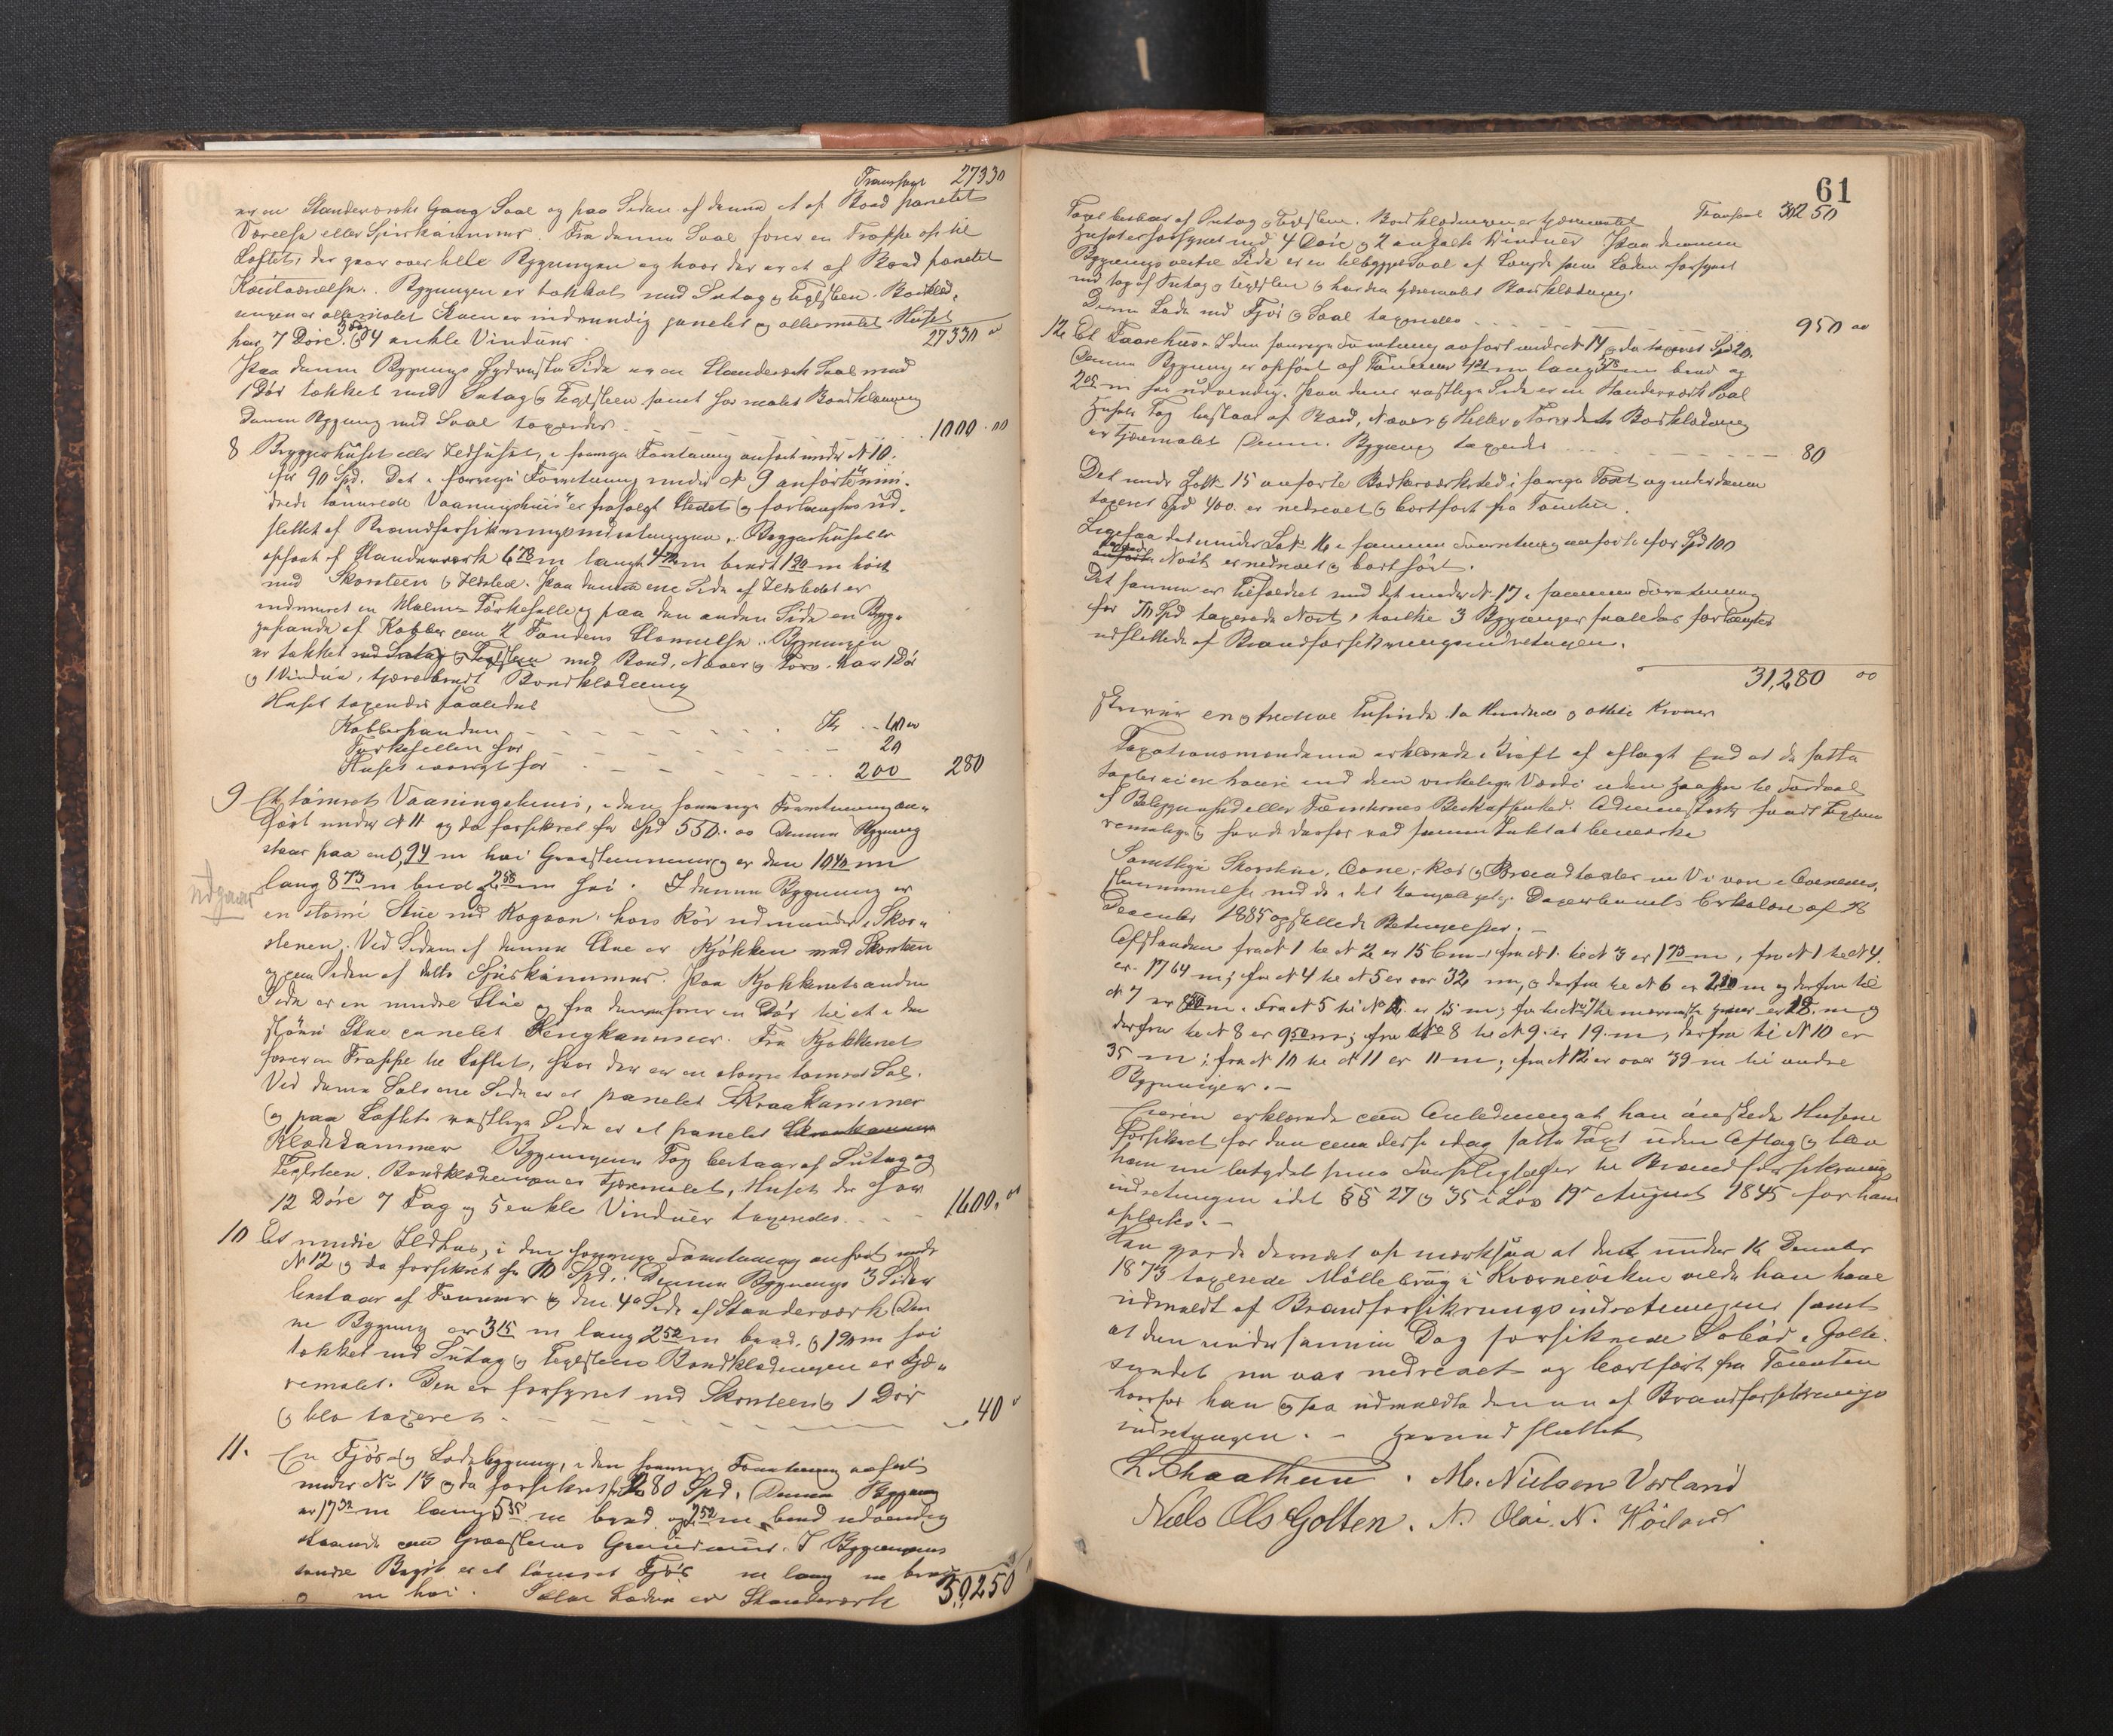 Transport 27330
er en Standerværks Gang Sval og paa Siden af denne et af Bord panelet
Værelse eller Spiskammer. Fra denne Sval fører en Trappe op til
Loftet, der gaar over hele Bygningen og hvor der er et af Bord panelet
Kvistværelse. Bygningen er tækket med Sutag & Teglsteen. Bordklæd-
ningen er oliemalet Stuen er indvendig panelet og oliemalet. Huset
har 7 Döre, & 4 enkle Vinduer
27330 00
Paa denne Bygnings Side er en Standerværk Sval med
1 Dör tækket med Sutag & Teglsteen samt har malet Bordklædning
Denne Bygning med Sval taxeredes 1000.00
8 Bryggerhuset eller Ildhuset, i forrige Forretning anført under N 10.
for 90 Spd. Det i forrige Forretning under N 9 anförte min-
dre tömrede Vaaningshuus er frasolgt Stedet & forlanges ud-
slettet af Brandforsikringsindretningen. Bryggerhuset er
opført af Standerværk 6 78 m langt 4 m bredt 1 90 m höit
med Skorsteen & Ildsted. Paa den ene Side af Ildstedet er
indmuret en Malm Tørkehelle og paa den anden Side en Bryg-
gepande af Kobber om 2 Tønders Størrelse. Bygningen
er tækket med Sutag & Teglsteen med Bord, Næver & Torv. har 1 Dör
& 1 Vindue, tjærebredt Bordklædning
Huset taxeredes saaledes
Kobberpanden Kr. 60 00
Tørkehellen for 20
Huset iøvrigt for 200 280
9 Et tömret Vaaningshuus, i den forrige Forretning an-
ført under N 11 og da forsikret for Spd 550.00 Denne Bygning
staar paa en 0,94 m høi Graasteensmur & er den 10 40 m
lang 8 73 m bred 2 58 m høi. I denne Bygning er
udgaar
en större Stue med Kogeovn, hvis Rør udmunder i Skor-
stenen. Ved Siden af denne Stue er Kjökken med Skorsteen
og ved Siden af dette Spiskammer. Paa Kjøkkenets anden
Side er en mindre Stue og fra denne fører en Dör til et i den
störrre Stue panelet Sengkammer. Fra Kjøkkenet
fører en Trappe til Loftet, hvor der er en større tømret Sal.
Ved denne Sals ene Side er et panelet Skraakammer
& paa Loftets vestlige Side er et panelet Skraakammer
Klædekammer Bygningens Tag bestaar af Sutag og
Teglsteen. Bordklædningen er tjæremalet, Huset der har
12 Döre 7 Fag og 5 enkle Vinduer taxeredes 1600.00
10 Et mindre Ildhus, i den forrige Forretning anført under
N 12 & da forsikret for 10 Spd. Denne Bygnings 3 Sider
bestaar af Tømmer & den 4de Side af Standerværk Den
ne Bygning er 3 15 m lang 2 52 m bred, & 1 90 m høi
tækket med Sutag & Teglsteen Bordklædningen er tjæ-
remalet. Den er forsynet med Skorsteen & 1 Dør
& blev taxeret 40
11. En Fjös- & Ladebygning, i den forrige Forretning anført
under No 13 & da forsikret for 280 Spd. Denne Bygning
er 17 32 m lang 5 35 m bred og 2 52 m bred udvendig
staaende paa Graasteens Grundmur. I Bygningens
søndre Part er et tömret Fjös m lang m bred
& m høi. Selve Laden er Standerværk 30,250
61
Transport 30250
Taget bestaar af Sutag & Teglsteen. Bordklædningen er tjæremalet
Huset er forsynet med 4 Döre & 2 enkelte Vinduer Paa denne
Bygnings østre Side er en tilbygget Sval af Længde som Laden forsynet
med tag af Sutag & Teglsteen & har den tjæremalet Bordklædning.
Denne Lade med Fjös & Sval taxeredes 950 00
12 Et Faarehus i den forrige Forretning anført under N 14 & da taxeret Spd 20.
Denne Bygning er opført af Tømmer 4 21 m lang m bred og
2 05 m høi udvendig. Paa dens vestlige Side er en Standerværk Sval
Husets Tag bestaar af Bord, Næver & Heller & Torv dets Bordklædning
er tjæremalet Denne Bygning taxeredes 80
Det under Litr. 15 anførte Bødkerværksted i forrige Taxt og under denne
taxeret Spd 400. er nedrevet & bortført fra Tomten.
Ligesaa det under Litr 16 i samme Forretning anførte for Spd 100
taxerede Nöst er nedrevet & bortført.
Det samme er Tilfældet med det under N. 17 i samme Forretning
for 70 Spd taxerede Nöst, hvilke 3 Bygninger saaledes forlanges
udslettede af Brandforsikringsindretningen.
31,280 00
skriver en & tredive Tusinde to Hundrede & otteti Kroner
Taxationsmændene erklærede i Kraft af aflagt Eed at de satte
Taxter ei ere høiere end den virkelige Værdi uden Hensyn til Fordeel
af Beliggenhed eller Tomternes Beskaffenhed. Administrator fandt Taxterne
rimelige & havde derfor ved samme Intet at bemærke
Samtlige Skorstene, Ovne, Rør & Brandtaxter er Vi vare i Overens-
stemmelse med de i det Kongelige Departements Cirkulære af 28
December 1885 opstillede Betingelser.—
Afstanden fra N 1 til N 2 er 15 6 m, fra N 1 til N 3 er 1 73 m, fra N 1 til N 4.
er 17 64 m; fra N 4 til N 5 er over 32 m, & derfra til N 6 er 2 80 m og derfra til
N 7 er m. Fra N 5 til N er 15 m; fra er 18 m &
derfra til N 8 er 9 50 m; fra No 8 til N 9 er 19 m, derfra til N 10 er
35 m; fra N 10 til N 11 er 11 m; fra N 12 er over 39 m til andre
Bygninger.—
Eieren erklærede paa Anledning at han ønskede Husene
forsikret for den paa disse idag satte Taxt uden Aflag & blev
ham nu betydet sine Forpligtelser til Brandforsikrings
indretningen idet §§ 27 & 35 i Lov 19de August 1845 for ham
oplæstes.—
Han gjorde dernæst opmærksom at den under 16 December
1873 taxerede Möllebrug i Kværneviken vilde han have
udmeldt af Brandforsikringsindretningen samt
at den under samme Dag forsikrede Söbod i Golte-
sundet nu var nedrevet og bortført fra Tomten
hvorfor han & saa udmeldte denne af Brandforsikrings
indretningen.— Hermed sluttet
L. Schaathun. M. Nielsen Vorland
Niels Ols Golten. N. Olai N. Höiland